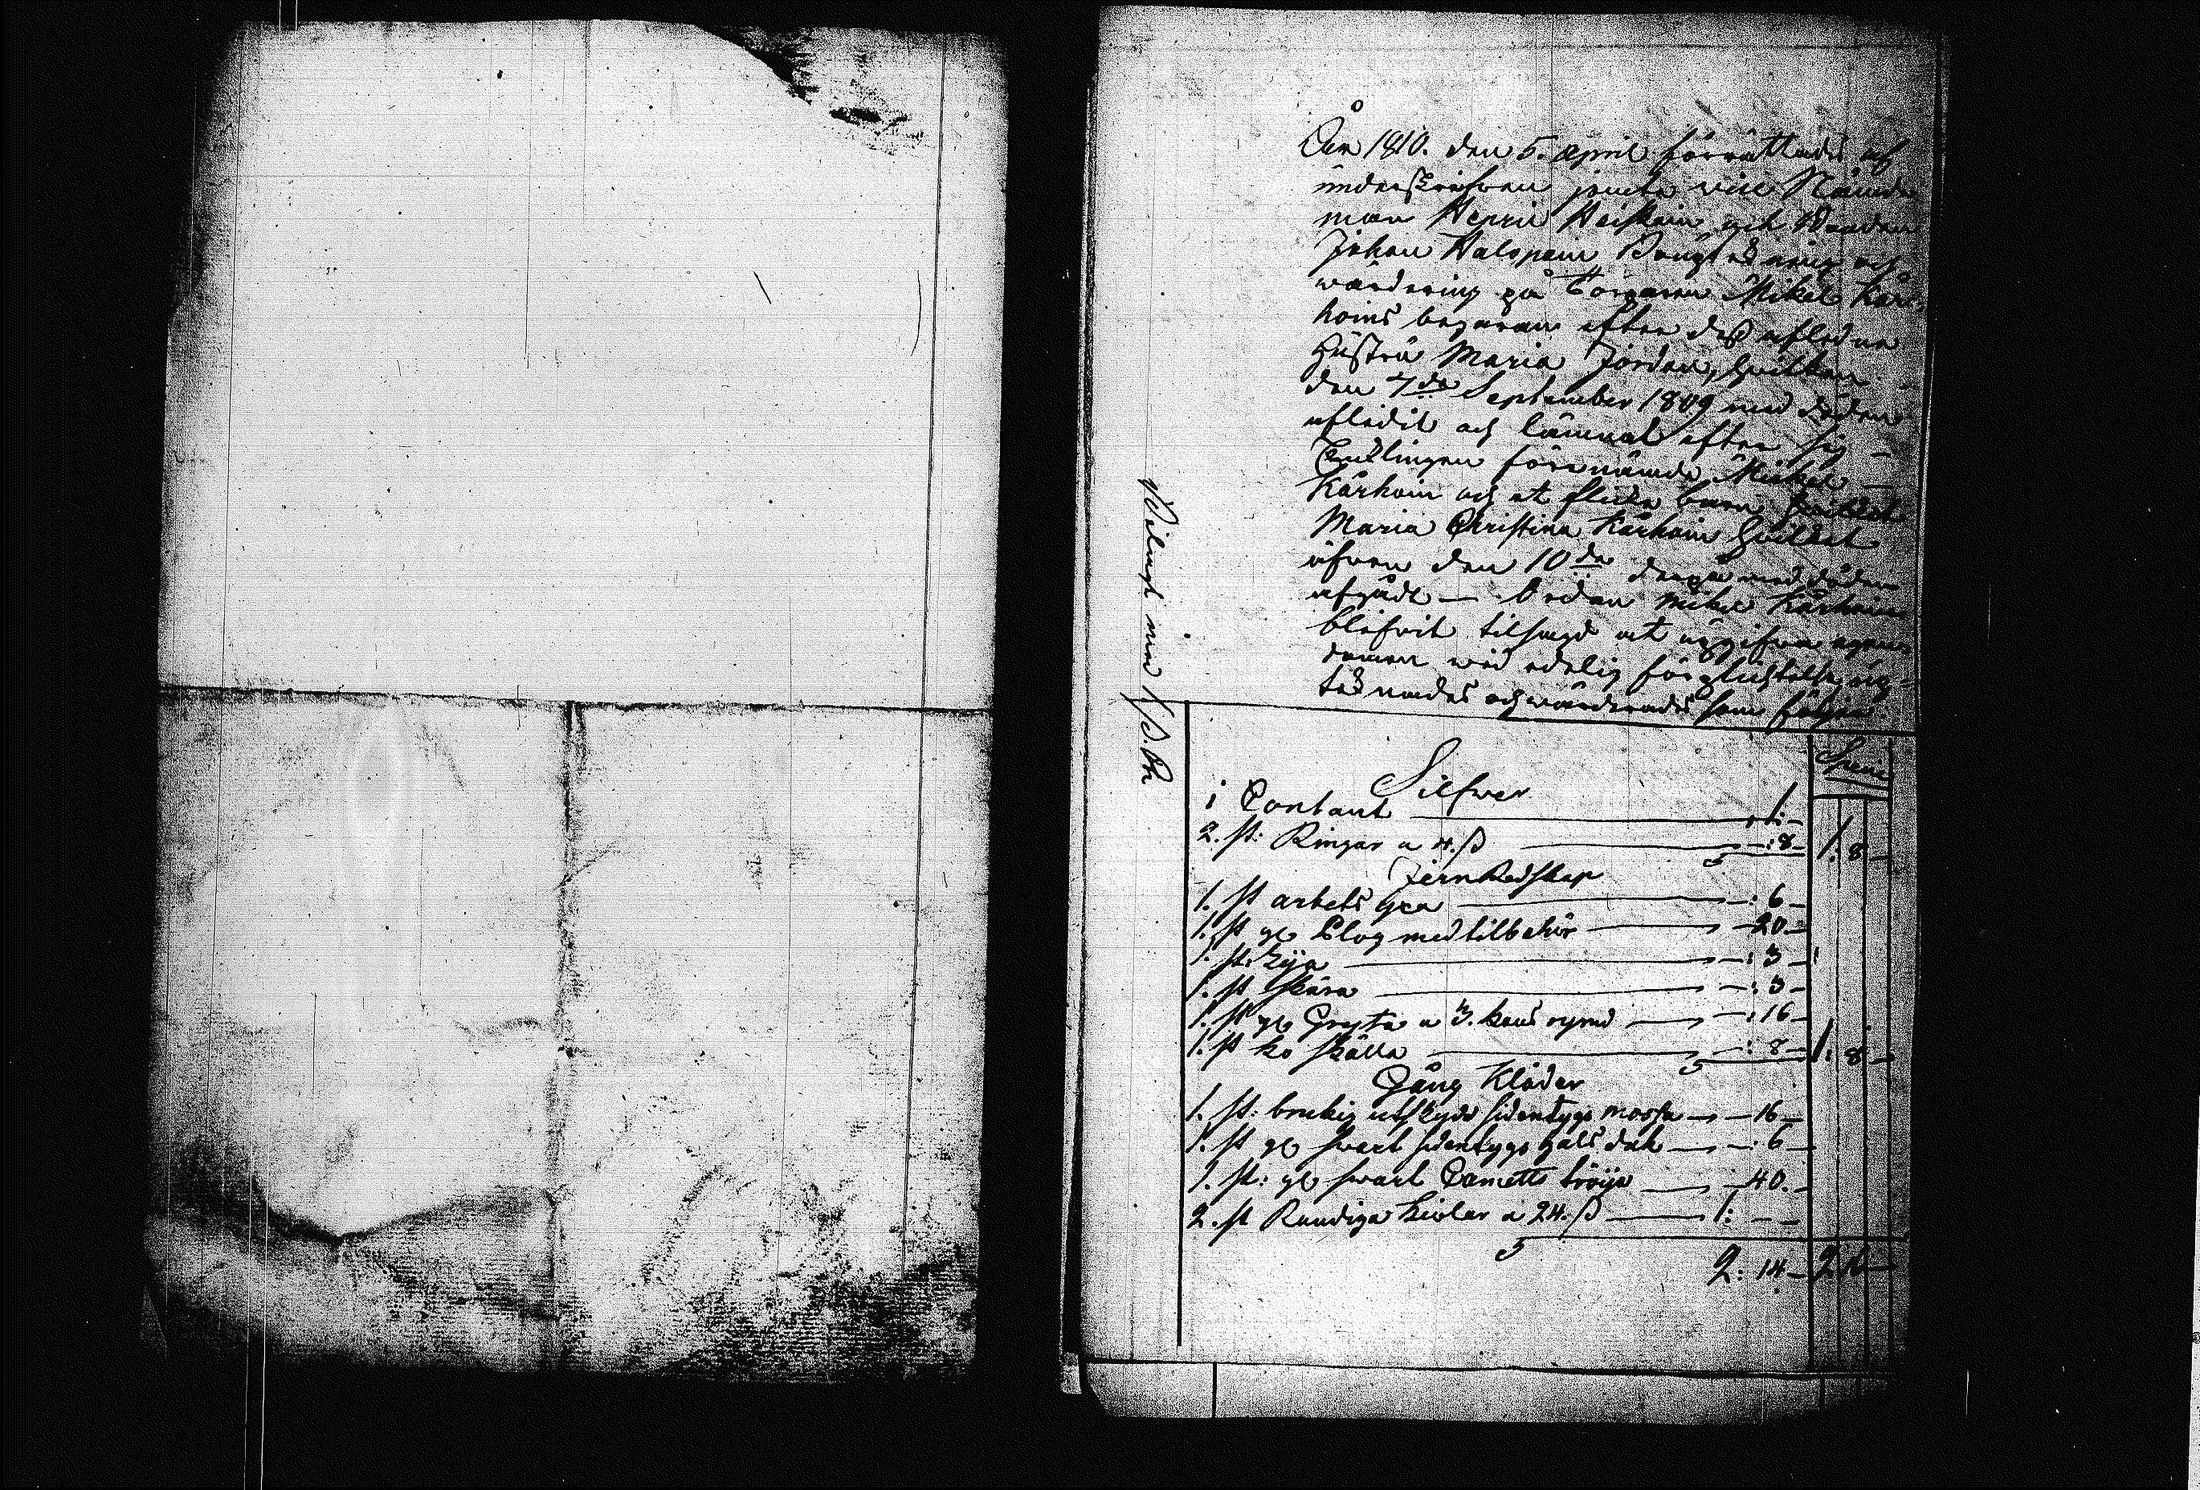 År 1810. den 5. April förrättades af
underskrifven jemte vice Nämde
man Henric Heiskain och Bonden
Johan Halopain Bouptekning och
wärdering på Torparen Mikel Kär-
hoins begäran efter dess afledna
Hustru Maria Jordan, hvilken
den 7de September 1809 med döden
afledit och lämnat efter sig
Enklingen förenämde Mickel
Kärhoin och et flicke barn
Maria Christina Kärhoin hvilket
äfven den 10de derpå med döden
afgådt — Sedan Mikel Kärhoin
blefvit tilsagd at uppgifva egen-
domen wid edelig förpligtelse up-
teknades och wärderades som följer.
Bilagt med 1/
Speci
Silfwer
i Contant — 1: —
2. st: Ringar a 4. ß — : 8 — 1: 8 —
Jern Redskap
1. st arbets yxa — : 6 —
1. st gl Plog med tilbehör — 20. —
1. st: Lija — : 3 —
1. st skära — : 3 —
1. st gl Gryta a 3. kans rymd — : 16 —
1. st ko skälla — : 8 — 1: 8 —
Gång Kläder
1. st: brukig sidentygs mössa — 16 —
1. st gl svart sidentygs hals duk — : 6 —
1. st: gl svart Camelts tröija — 40. —
2. st Randiga kiolar a 24. ß — 1: — —
2: 14 —